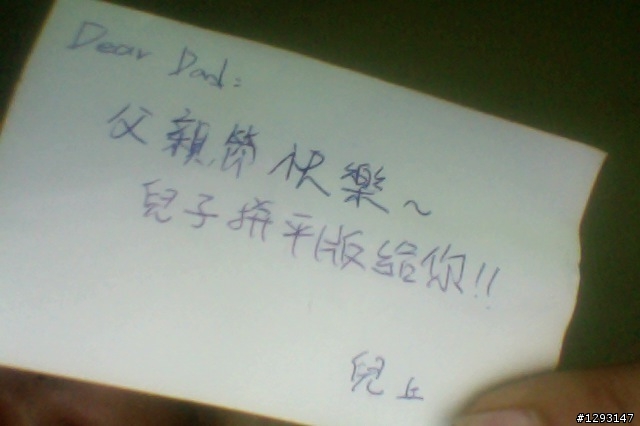 Dear Dad:
父親節快樂~
兒子拼平版給你!!
兒上
#1293147